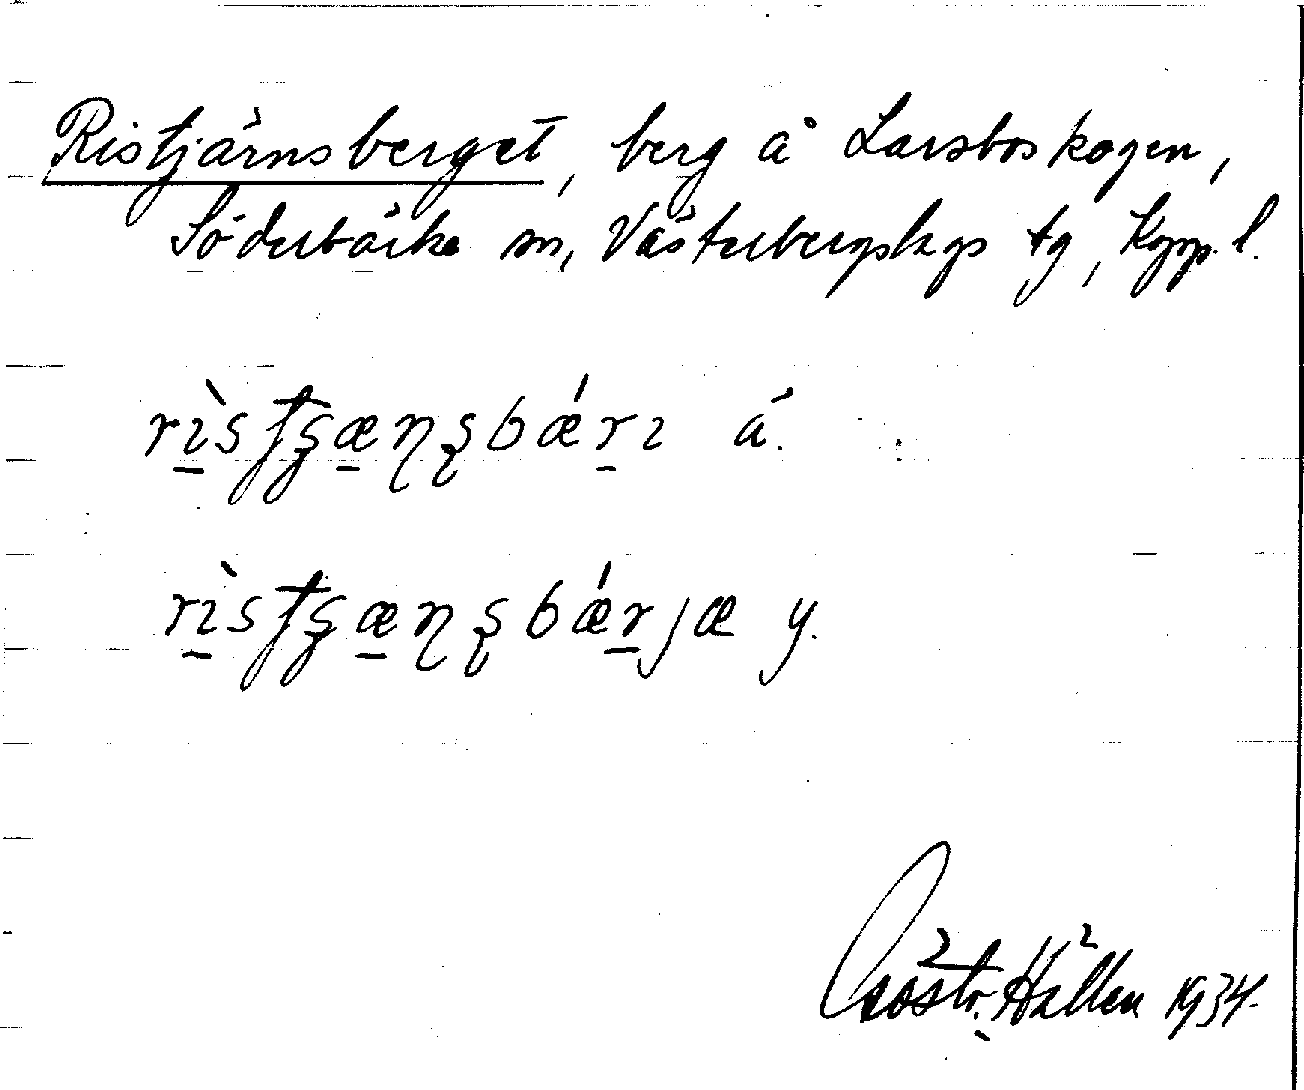 Ristjärnsberget, berg å Larsboskogen,
Söderbärke sn, Västerbergslags tg, Kopp. l.
rìsʈʂæɳʂbǽrı ä.
rìsʈʂæɳʂbǽrjæ y.
Östr. Hällen 1934.